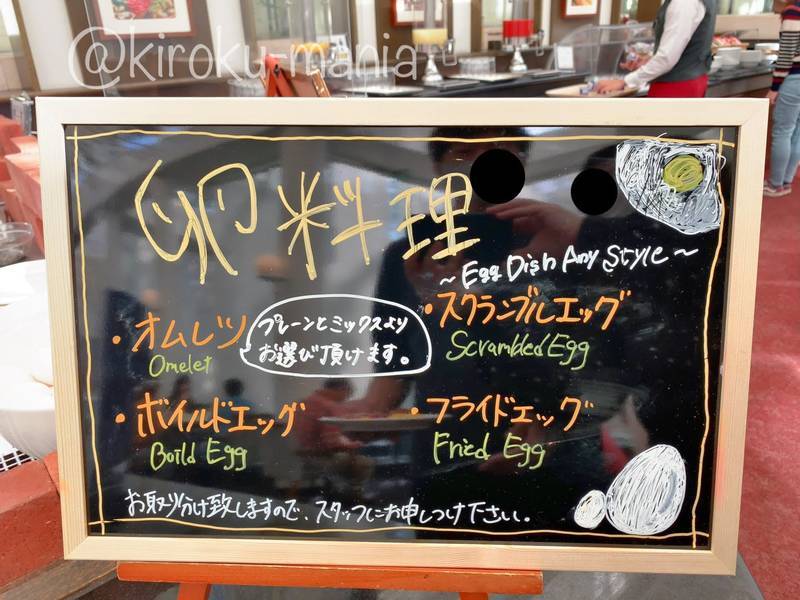 @kiroku-mania
卵料理
～Egg Dish Any Style～
・オムレツ
Omelet
プレーンとミックスより
お選び頂けます。
・スクランブルエッグ
Scrambled Egg
・ボイルドエッグ
Boild Egg
・フライドエッグ
Fried Egg
お取り分け致しますので、スタッフにお申しつけ下さい。